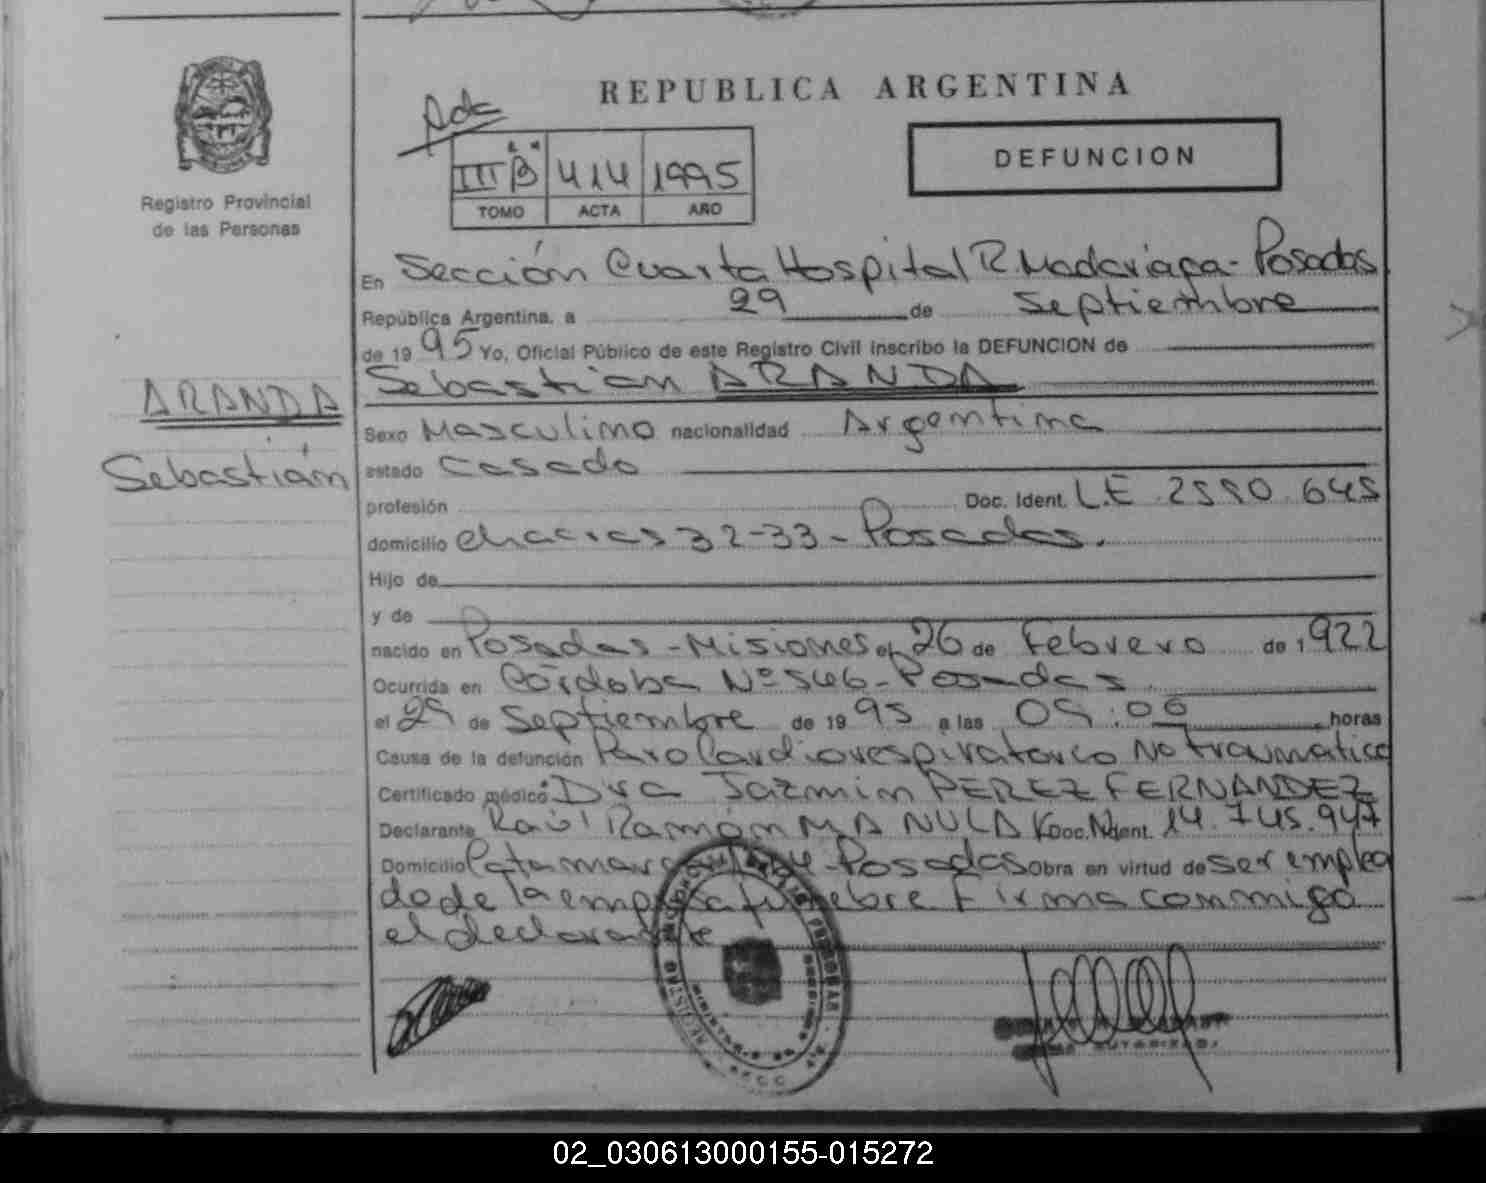 REPUBLICA ARGENTINA
DEFUNCION
III B 414 1995
TOMO ACTA AÑO
Registro Provincial
de las Personas
ARANDA
Sebastián
En Sección Cuarta Hospital R. Madariaga - Posadas
República Argentina, a 29 de Septiembre
de 1995 Yo, Oficial Público de este Registro Civil inscribo la DEFUNCION de
Sebastian ARANDA
Sexo Masculino nacionalidad Argentina
estado Casado
profesión Doc. Ident. LE 2550.645
domicilio Chacras 32-33 - Posadas.
Hijo de
y de
nacido en Posadas - Misiones el 26 de Febrero de 1922
Ocurrida en Córdoba Nº 546 - Posadas
el 29 de Septiembre de 1995 a las 05:00 horas
Causa de la defunción Paro Cardiorespiratorio No Traumatico
Certificado médico: Dra Jazmin PEREZ FERNANDEZ
Declarante Raúl Ramón Doc. Ident. 14.745.947
Domicilio Catamarca Posadas Obra en virtud de ser emplea
do de la empresa funebre Firma conmigo
el declarante
02_030613000155-015272